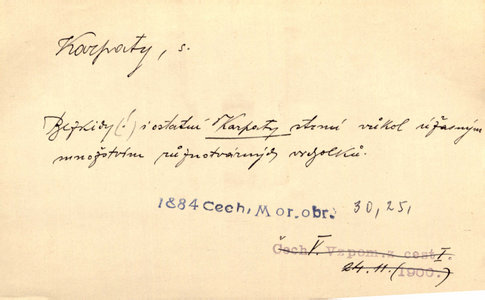 Karpaty, s.
Bezkidy (!) i ostatní Karpaty strmí vůkol úžasným
množstvím různotvárných vrcholků.
1884 Čech, Mor. obr. 30, 25,
Čech V. Vzpom. z cest I.
24. II. (1900.